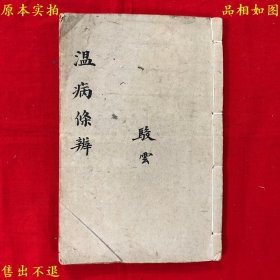 原本实拍
品相如图
温病條辨
駿雲
售出不退
诚信经营